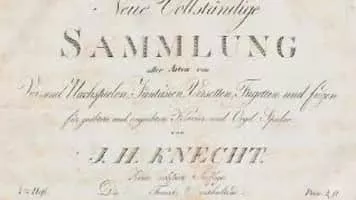 Neue Vollständige
SAMMLUNG
aller Arten von
Vor und Nachspielen, Fantasien, Versetten, Fugetten und Fugen
für geübtere und ungeübtere Klavier und Orgel Spieler
von
J. H. KNECHT.
Heft.
Die